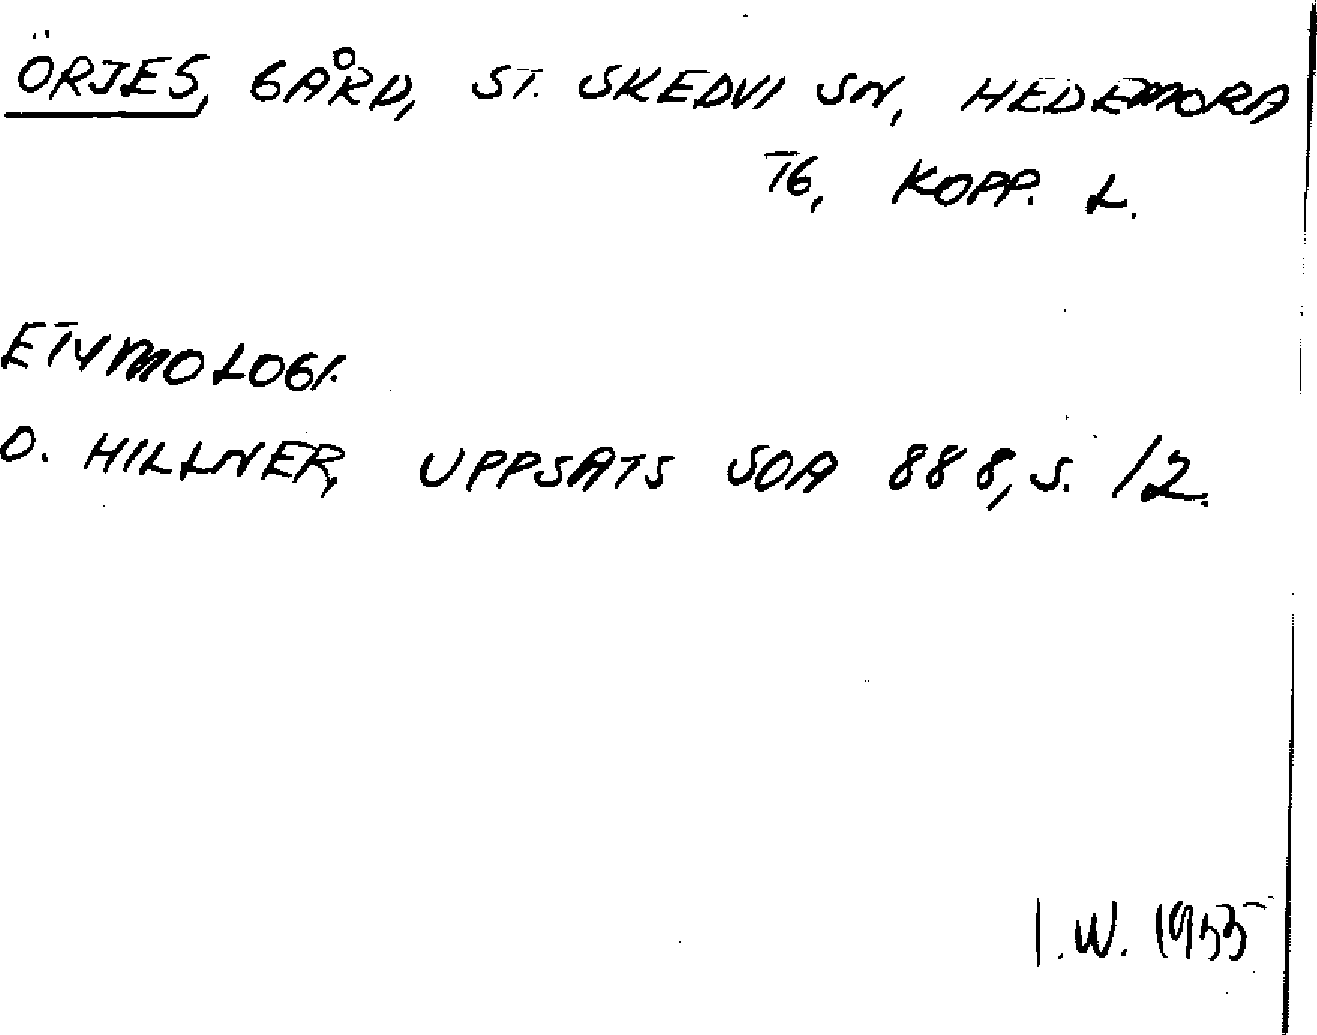 ÖRJES, GÅRD, ST. SKEDVI SN, HEDEMORA
TG, KOPP. L.
ETYMOLOGI.
O. HILLNER, UPPSATS SOA 888, S. 12.
I. W. 1955